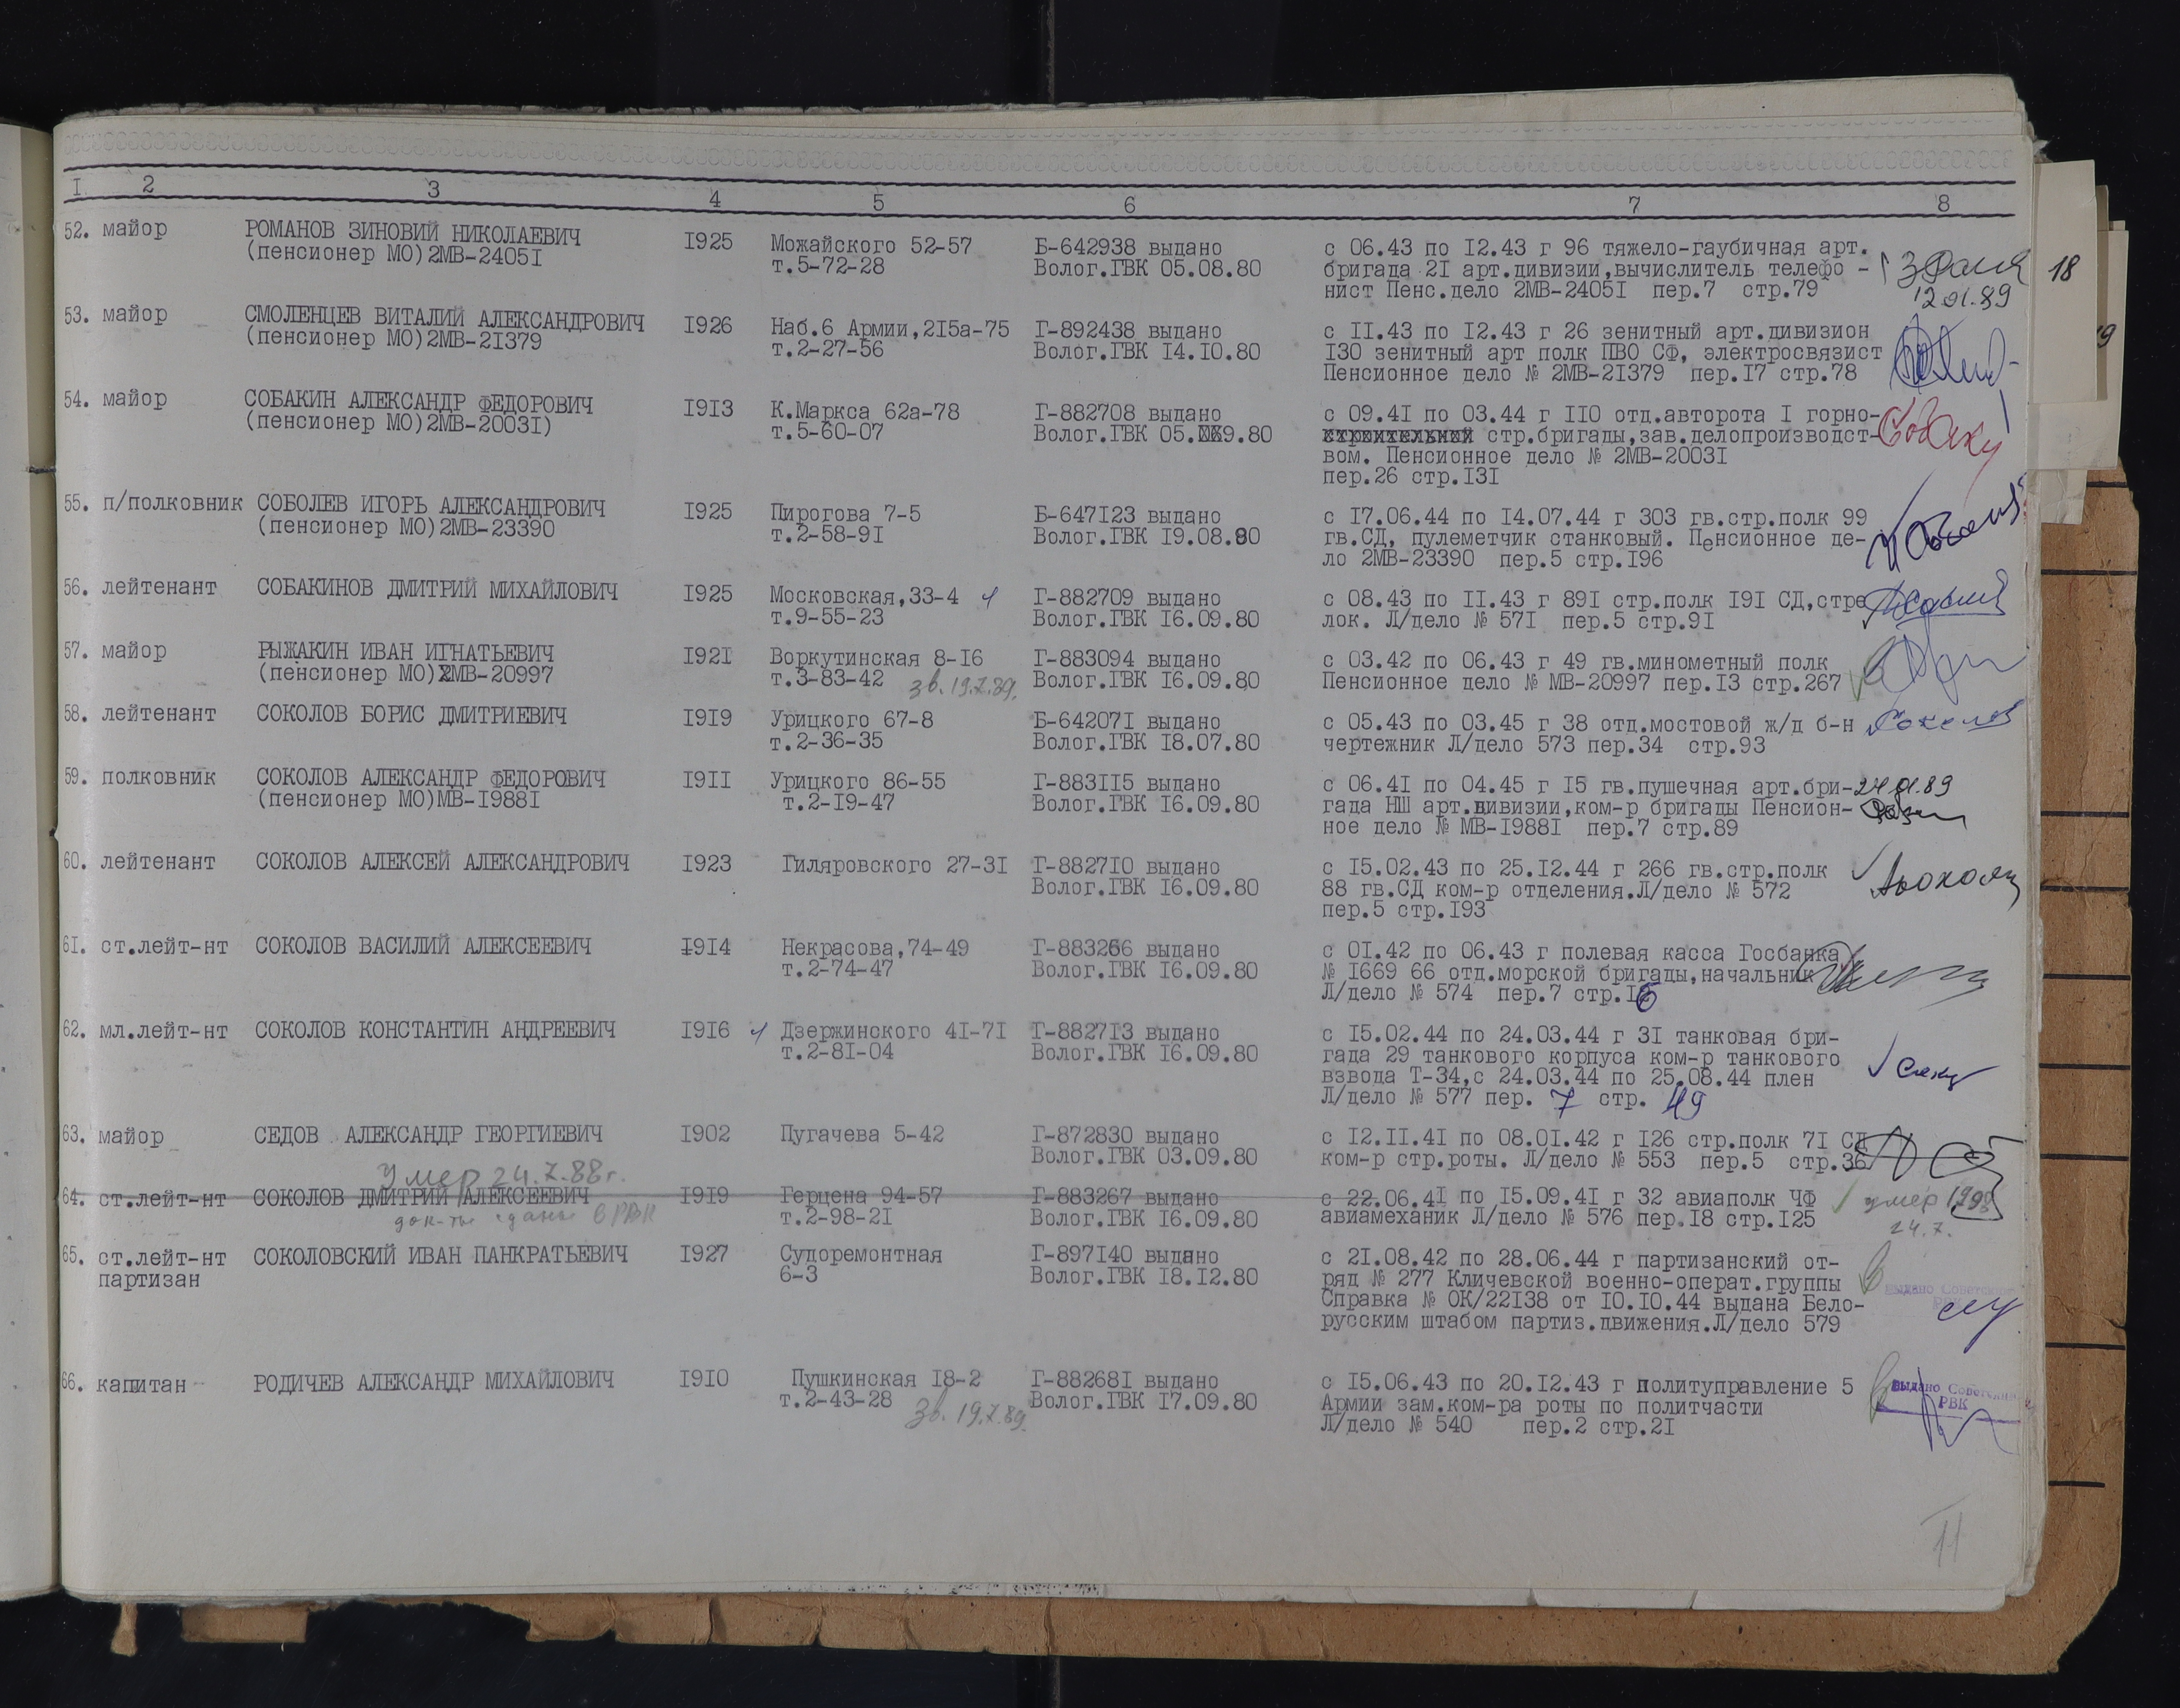 I. 2 3 4 5 6 7 8
52. майор РОМАНОВ ЗИНОВИЙ НИКОЛАЕВИЧ I925 Можайского 52-57 Б-642938 выдано с 06.43 по I2.43 г 96 тяжело-гаубичная арт.
(пенсионер МО)2МВ-2405I т.5-72-28 Волог.ГВК 05.08.80 бригада 2I арт.дивизии,вычислитель телефо -
нист Пенс.дело 2МВ-2405I пер.7 стр.79
12.01.89
18
53. майор СМОЛЕНЦЕВ ВИТАЛИЙ АЛЕКСАНДРОВИЧ I926 Наб.6 Армии,2I5а-75 Г-892438 выдано с II.43 по I2.43 г 26 зенитный арт.дивизион
(пенсионер МО)2МВ-2I379 т.2-27-56 Волог.ГВК I4.I0.80 I30 зенитный арт полк ПВО СФ, электросвязист
Пенсионное дело № 2МВ-2I379 пер.I7 стр.78
54. майор СОБАКИН АЛЕКСАНДР ФЕДОРОВИЧ I9I3 К.Маркса 62а-78 Г-882708 выдано с 09.4I по 03.44 г II0 отд.авторота I горно-
(пенсионер МО)2МВ-2003I) т.5-60-07 Волог.ГВК 05.09.80 стр.бригады,зав.делопроизводст-
вом. Пенсионное дело № 2МВ-2003I
пер.26 стр.I3I
55. п/полковник СОБОЛЕВ ИГОРЬ АЛЕКСАНДРОВИЧ I925 Пирогова 7-5 Б-647I23 выдано с I7.06.44 по I4.07.44 г 303 гв.стр.полк 99
(пенсионер МО)2МВ-23390 т.2-58-9I Волог.ГВК I9.08.80 гв.СД, пулеметчик станковый. Пенсионное де-
ло 2МВ-23390 пер.5 стр.I96
56. лейтенант СОБАКИНОВ ДМИТРИЙ МИХАЙЛОВИЧ I925 Московская,33-4 Г-882709 выдано с 08.43 по II.43 г 89I стр.полк I9I СД,стре
т.9-55-23 Волог.ГВК I6.09.80 лок. Л/дело № 57I пер.5 стр.9I
57. майор РЫЖАКИН ИВАН ИГНАТЬЕВИЧ I92I Воркутинская 8-I6 Г-883094 выдано с 03.42 по 06.43 г 49 гв.минометный полк
(пенсионер МО)2МВ-20997 т.3-83-42 зв. 19.7.89. Волог.ГВК I6.09.80 Пенсионное дело № МВ-20997 пер.I3 стр.267
58. лейтенант СОКОЛОВ БОРИС ДМИТРИЕВИЧ I9I9 Урицкого 67-8 Б-64207I выдано с 05.43 по 03.45 г 38 отд.мостовой ж/д б-н Соколов
т.2-36-35 Волог.ГВК I8.07.80 чертежник Л/дело 573 пер.34 стр.93
59. полковник СОКОЛОВ АЛЕКСАНДР ФЕДОРОВИЧ I9II Урицкого 86-55 Г-883II5 выдано с 06.4I по 04.45 г I5 гв.пушечная арт.бри- 24.01.89
(пенсионер МО)МВ-I988I т.2-I9-47 Волог.ГВК I6.09.80 гада НШ арт.дивизии,ком-р бригады Пенсион-
ное дело № МВ-I988I пер.7 стр.89
60. лейтенант СОКОЛОВ АЛЕКСЕЙ АЛЕКСАНДРОВИЧ I923 Гиляровского 27-3I Г-8827I0 выдано с I5.02.43 по 25.I2.44 г 266 гв.стр.полк
Волог.ГВК I6.09.80 88 гв.СД ком-р отделения.Л/дело № 572
пер.5 стр.I93
6I. ст.лейт-нт СОКОЛОВ ВАСИЛИЙ АЛЕКСЕЕВИЧ I9I4 Некрасова,74-49 Г-883266 выдано с 0I.42 по 06.43 г полевая касса Госбанка
т.2-74-47 Волог.ГВК I6.09.80 № I669 66 отд.морской бригады,начальник
Л/дело № 574 пер.7 стр.I6
62. мл.лейт-нт СОКОЛОВ КОНСТАНТИН АНДРЕЕВИЧ I9I6 Дзержинского 4I-7I Г-8827I3 выдано с I5.02.44 по 24.03.44 г 3I танковая бри-
т.2-8I-04 Волог.ГВК I6.09.80 гада 29 танкового корпуса ком-р танкового
взвода Т-34,с 24.03.44 по 25.08.44 плен
Л/дело № 577 пер. 7 стр. 49
63. майор СЕДОВ АЛЕКСАНДР ГЕОРГИЕВИЧ I902 Пугачева 5-42 Г-872830 выдано с I2.II.4I по 08.0I.42 г I26 стр.полк 7I СД
Волог.ГВК 03.09.80 ком-р стр.роты. Л/дело № 553 пер.5 стр.36
Умер 24.7.88г.
64. ст.лейт-нт СОКОЛОВ ДМИТРИЙ АЛЕКСЕЕВИЧ I9I9 Герцена 94-57 Г-883267 выдано с 22.06.4I по I5.09.4I г 32 авиаполк ЧФ умер
док-ты сданы в РВК т.2-98-2I Волог.ГВК I6.09.80 авиамеханик Л/дело № 576 пер.I8 стр.I25 24.7.
65. ст.лейт-нт СОКОЛОВСКИЙ ИВАН ПАНКРАТЬЕВИЧ I927 Судоремонтная Г-897I40 выдано с 2I.08.42 по 28.06.44 г партизанский от-
партизан 6-3 Волог.ГВК I8.I2.80 ряд № 277 Кличевской военно-операт.группы
Справка № ОК/22I38 от I0.I0.44 выдана Бело- выдано Советским РВК
русским штабом партиз.движения.Л/дело 579
66. капитан РОДИЧЕВ АЛЕКСАНДР МИХАЙЛОВИЧ I9I0 Пушкинская I8-2 Г-88268I выдано с I5.06.43 по 20.I2.43 г политуправление 5 выдано Советским
т.2-43-28 зв. 19.7.89. Волог.ГВК I7.09.80 Армии зам.ком-ра роты по политчасти РВК
Л/дело № 540 пер.2 стр.2I
11